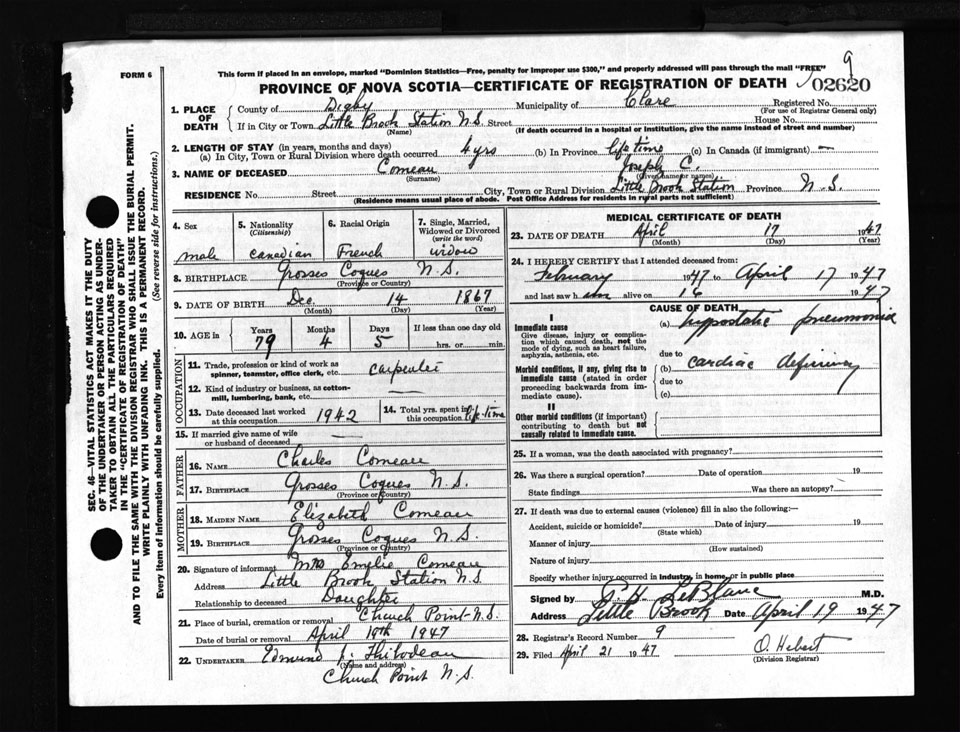 FORM 6
This form if placed in an envelope, marked "Dominion Statistics—Free, penalty for improper use $300," and properly addressed will pass through the mail "FREE"
9
PROVINCE OF NOVA SCOTIA—CERTIFICATE OF REGISTRATION OF DEATH
02620
1. PLACE OF DEATH
County of Digby Municipality of Clare Registered No.
(For use of Registrar General only)
If in City or Town Little Brook Station N.S. Street House No.
(Name) (If death occurred in a hospital or institution, give the name instead of street and number)
2. LENGTH OF STAY (in years, months and days)
(a) In City, Town or Rural Division where death occurred 4 yrs (b) In Province life time (c) In Canada (if immigrant) —
3. NAME OF DECEASED Comeau Joseph C.
(Surname) (Given name or names)
RESIDENCE No. Street City, Town or Rural Division Little Brook Station Province N.S.
(Residence means usual place of abode. Post Office Address for residents in rural parts not sufficient)
4. Sex
male
5. Nationality
(Citizenship)
Canadian
6. Racial Origin
French
7. Single, Married, Widowed or Divorced
(write the word)
widow
8. BIRTHPLACE Grosses Coques N.S.
(Province or Country)
9. DATE OF BIRTH Dec. 14 1867
(Month) (Day) (Year)
10. AGE in
Years Months Days If less than one day old
79 4 5 hrs. or min.
OCCUPATION
11. Trade, profession or kind of work as spinner, teamster, office clerk, etc. carpenter
12. Kind of industry or business, as cotton-mill, lumbering, bank, etc. —
13. Date deceased last worked at this occupation 1942
14. Total yrs. spent in this occupation life-time
15. If married give name of wife or husband of deceased —
FATHER
16. NAME Charles Comeau
17. BIRTHPLACE Grosses Coques N.S.
(Province or Country)
MOTHER
18. MAIDEN NAME Elizabeth Comeau
19. BIRTHPLACE Grosses Coques N.S.
(Province or Country)
20. Signature of informant Mrs Emilie Comeau
Address Little Brook Station N.S.
Relationship to deceased Daughter
21. Place of burial, cremation or removal Church Point-N.S.
Date of burial or removal April 19th 1947
22. UNDERTAKER Edmund J. Thibodeau
(Name and address)
Church Point N.S.
MEDICAL CERTIFICATE OF DEATH
23. DATE OF DEATH April 17 1947
(Month) (Day) (Year)
24. I HEREBY CERTIFY that I attended deceased from:
February 1947 to April 17 1947
and last saw him alive on 16 1947
CAUSE OF DEATH
I
Immediate cause
Give disease, injury or complication which caused death, not the mode of dying, such as heart failure, asphyxia, asthenia, etc.
(a) hypostatic pneumonia
due to
Morbid conditions, if any, giving rise to immediate cause (stated in order proceeding backwards from immediate cause).
(b) cardiac deficiency
due to
(c)
II
Other morbid conditions (if important) contributing to death but not causally related to immediate cause.
25. If a woman, was the death associated with pregnancy?
26. Was there a surgical operation? Date of operation 19
State findings Was there an autopsy?
27. If death was due to external causes (violence) fill in also the following:—
Accident, suicide or homicide? Date of injury 19
(State which)
Manner of injury
(How sustained)
Nature of injury
Specify whether injury occurred in industry, in home, or in public place
Signed by P. H. LeBlanc M.D.
Address Little Brook Date April 19 1947
28. Registrar's Record Number 9
29. Filed April 21 1947 O. Hebert
(Division Registrar)
SEC. 46—VITAL STATISTICS ACT MAKES IT THE DUTY
OF THE UNDERTAKER OR PERSON ACTING AS UNDER-
TAKER TO OBTAIN ALL THE PARTICULARS REQUIRED
IN THE "CERTIFICATE OF REGISTRATION OF DEATH"
AND TO FILE THE SAME WITH THE DIVISION REGISTRAR WHO SHALL ISSUE THE BURIAL PERMIT.
WRITE PLAINLY WITH UNFADING INK. THIS IS A PERMANENT RECORD.
Every item of information should be carefully supplied. (See reverse side for instructions.)